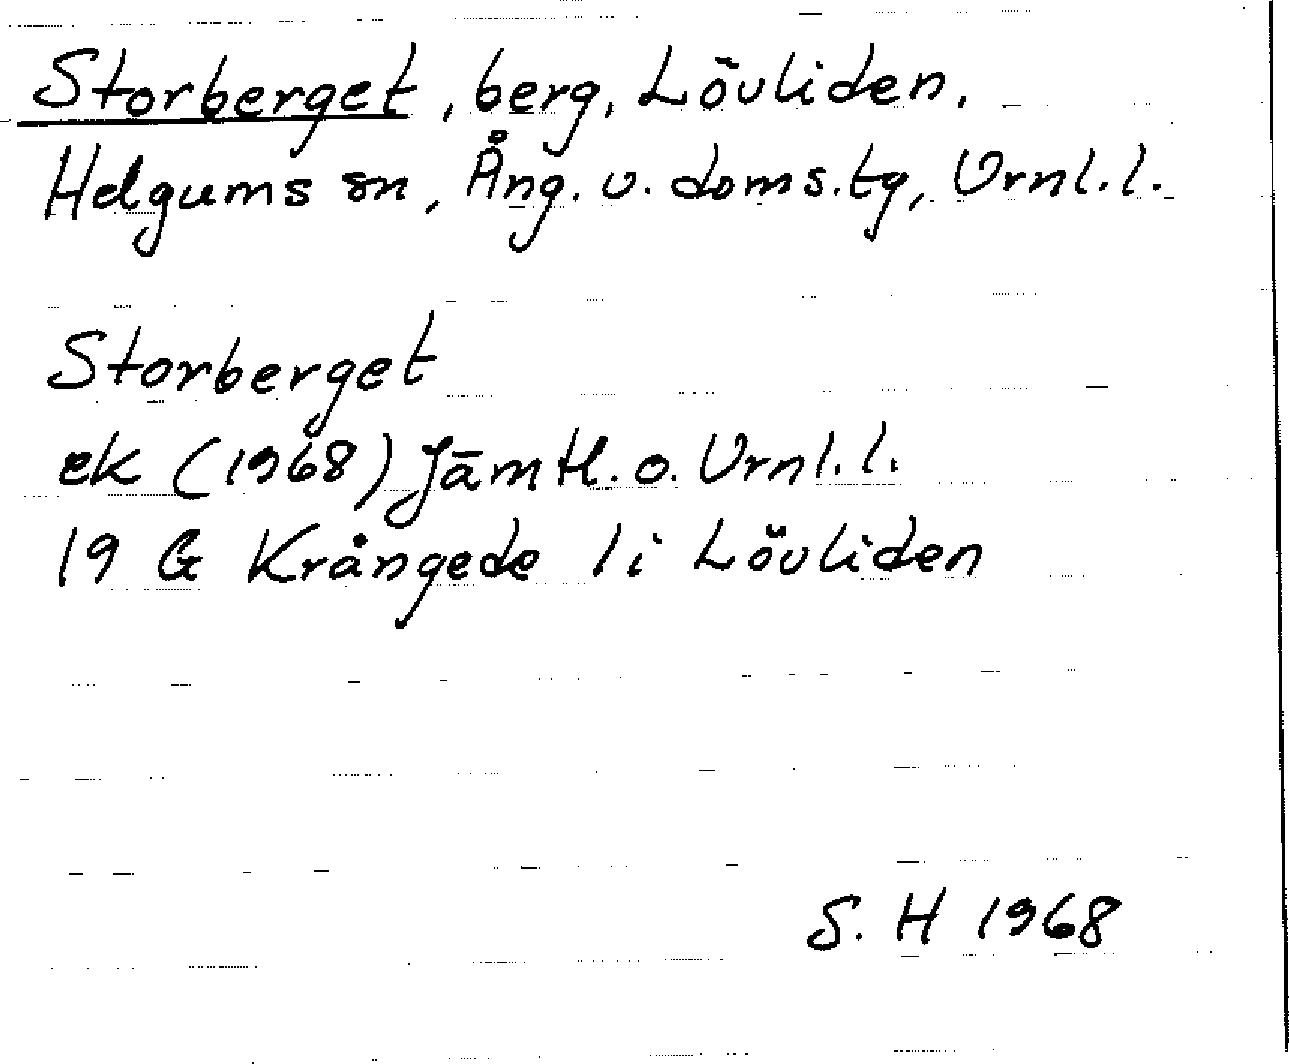 Storberget, berg, Lövliden,
Helgums sn, Ång. v. doms.tg, Vrnl.l.
Storberget
ek (1968) Jämtl. o. Vrnl.l.
19 G Krångede 1 i Lövliden
S. H 1968